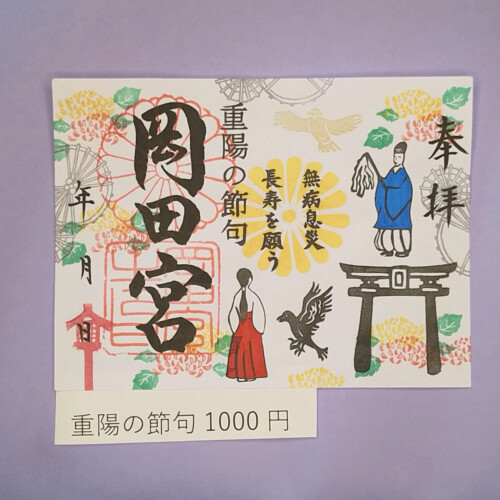 奉拝
無病息災
長寿を願う
重陽の節句
岡田宮
年月日
重陽の節句 1000 円